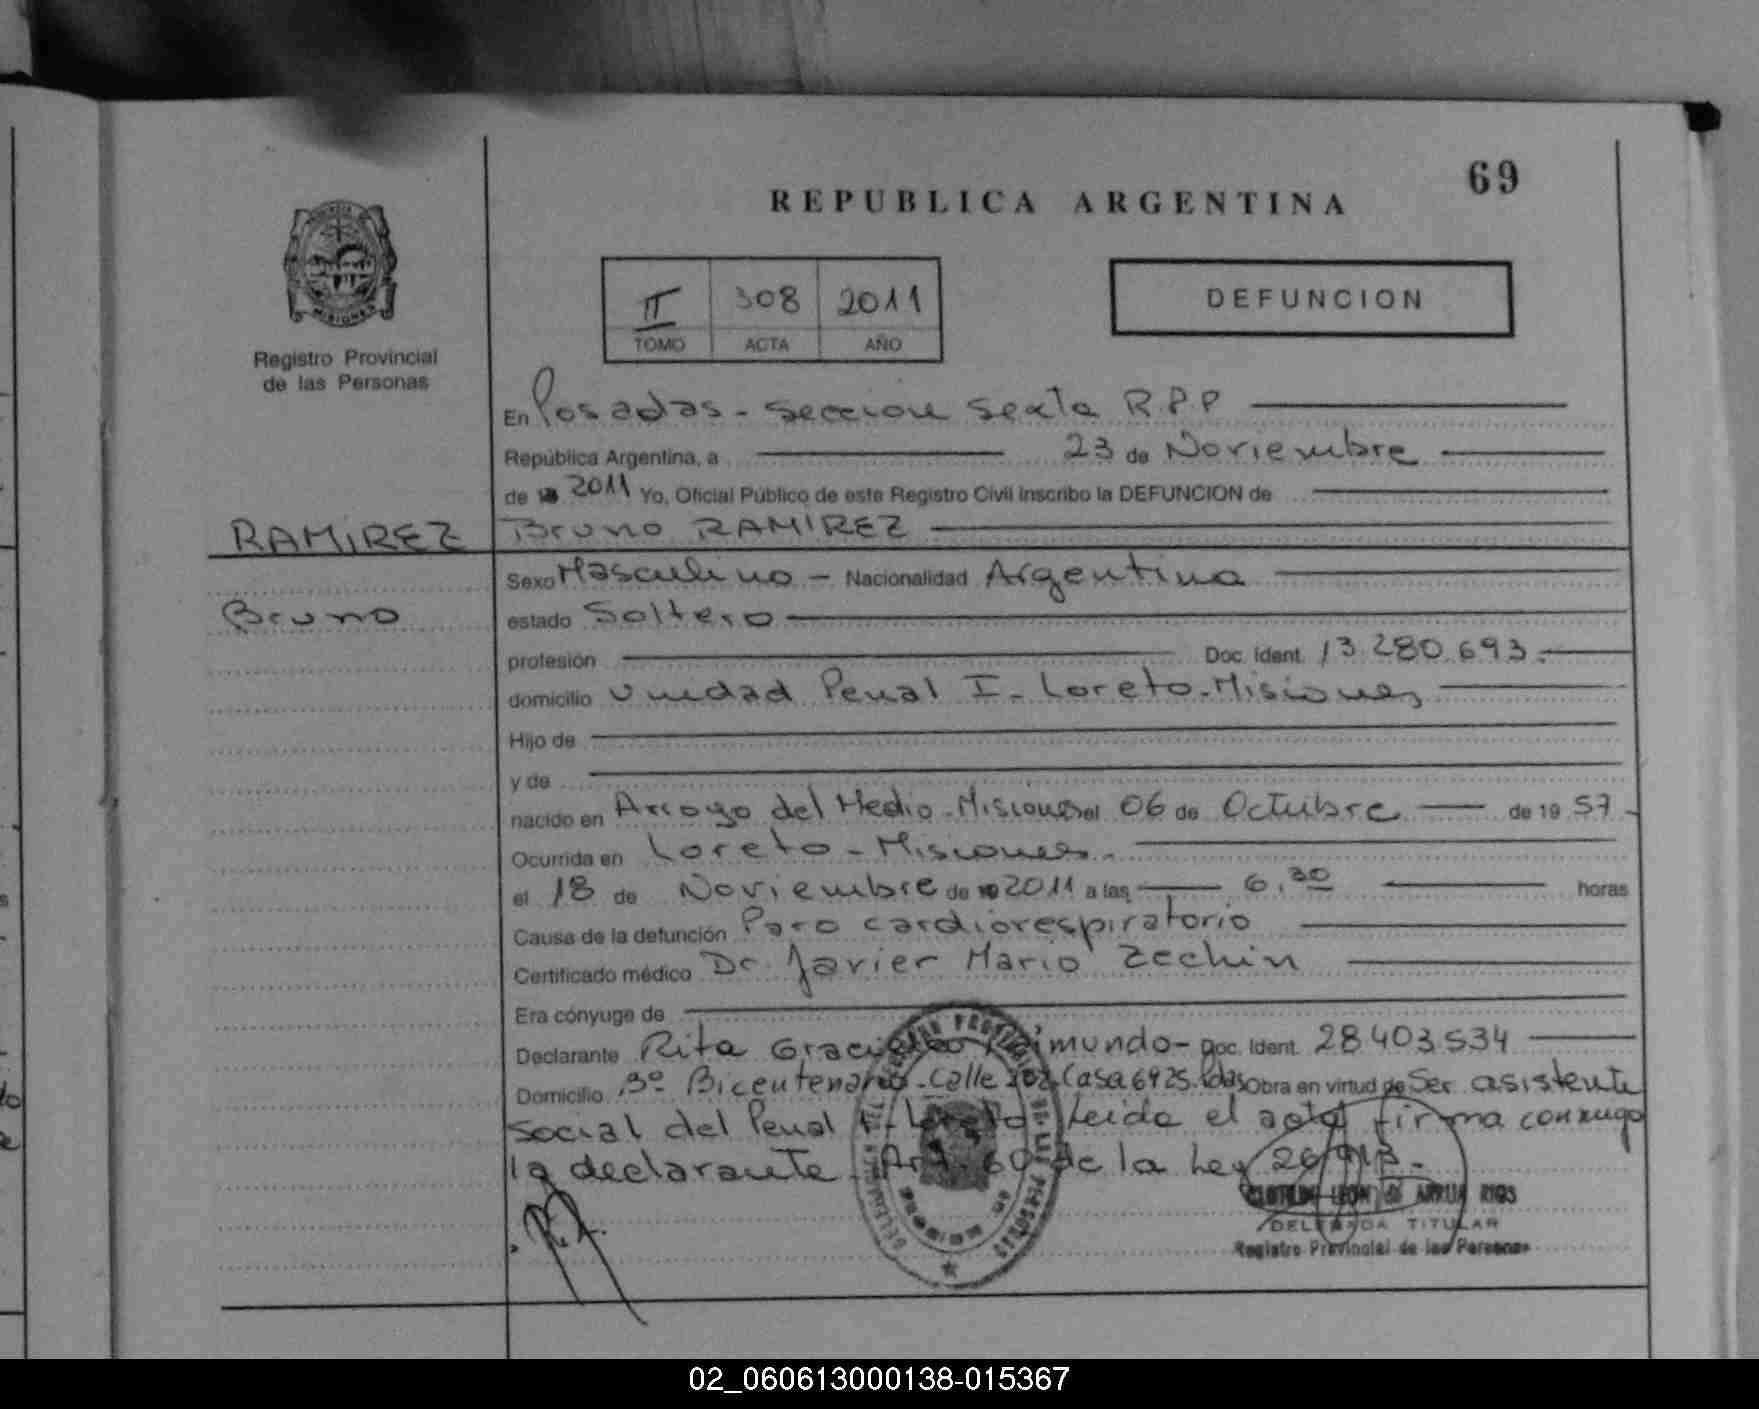 69
REPUBLICA ARGENTINA
II 308 2011
TOMO ACTA AÑO
DEFUNCION
MISIONES
Registro Provincial
de las Personas
En Posadas - seccion sexta R.P.P
República Argentina, a 23 de Noviembre
de 2011 Yo, Oficial Público de este Registro Civil inscribo la DEFUNCION de
RAMIREZ Bruno RAMIREZ
Sexo Masculino - Nacionalidad Argentina
Bruno
estado Soltero
profesión Doc. Ident. 13.280.693.
domicilio Unidad Penal I - Loreto - Misiones
Hijo de
y de
nacido en Arroyo del Medio - Misiones el 06 de Octubre de 19 57
Ocurrida en Loreto - Misiones.
el 18 de Noviembre de 2011 a las 6.30 horas
Causa de la defunción Paro cardiorespiratorio
Certificado médico Dr. Javier Mario Zechin
Era cónyuge de
Declarante Rita Graciela Raimundo - Doc. Ident. 28.403.534
Domicilio Bº Bicentenario - Calle 202 Casa 6925. Pdas Obra en virtud de Ser asistente
social del Penal I - Loreto Leida el acta firma conmigo
la declarante. Art. 60 de la Ley 26.413.
CLOTILDE LEON DE ARRUA RIOS
DELEGADA TITULAR
Registro Provincial de las Personas
02_060613000138-015367